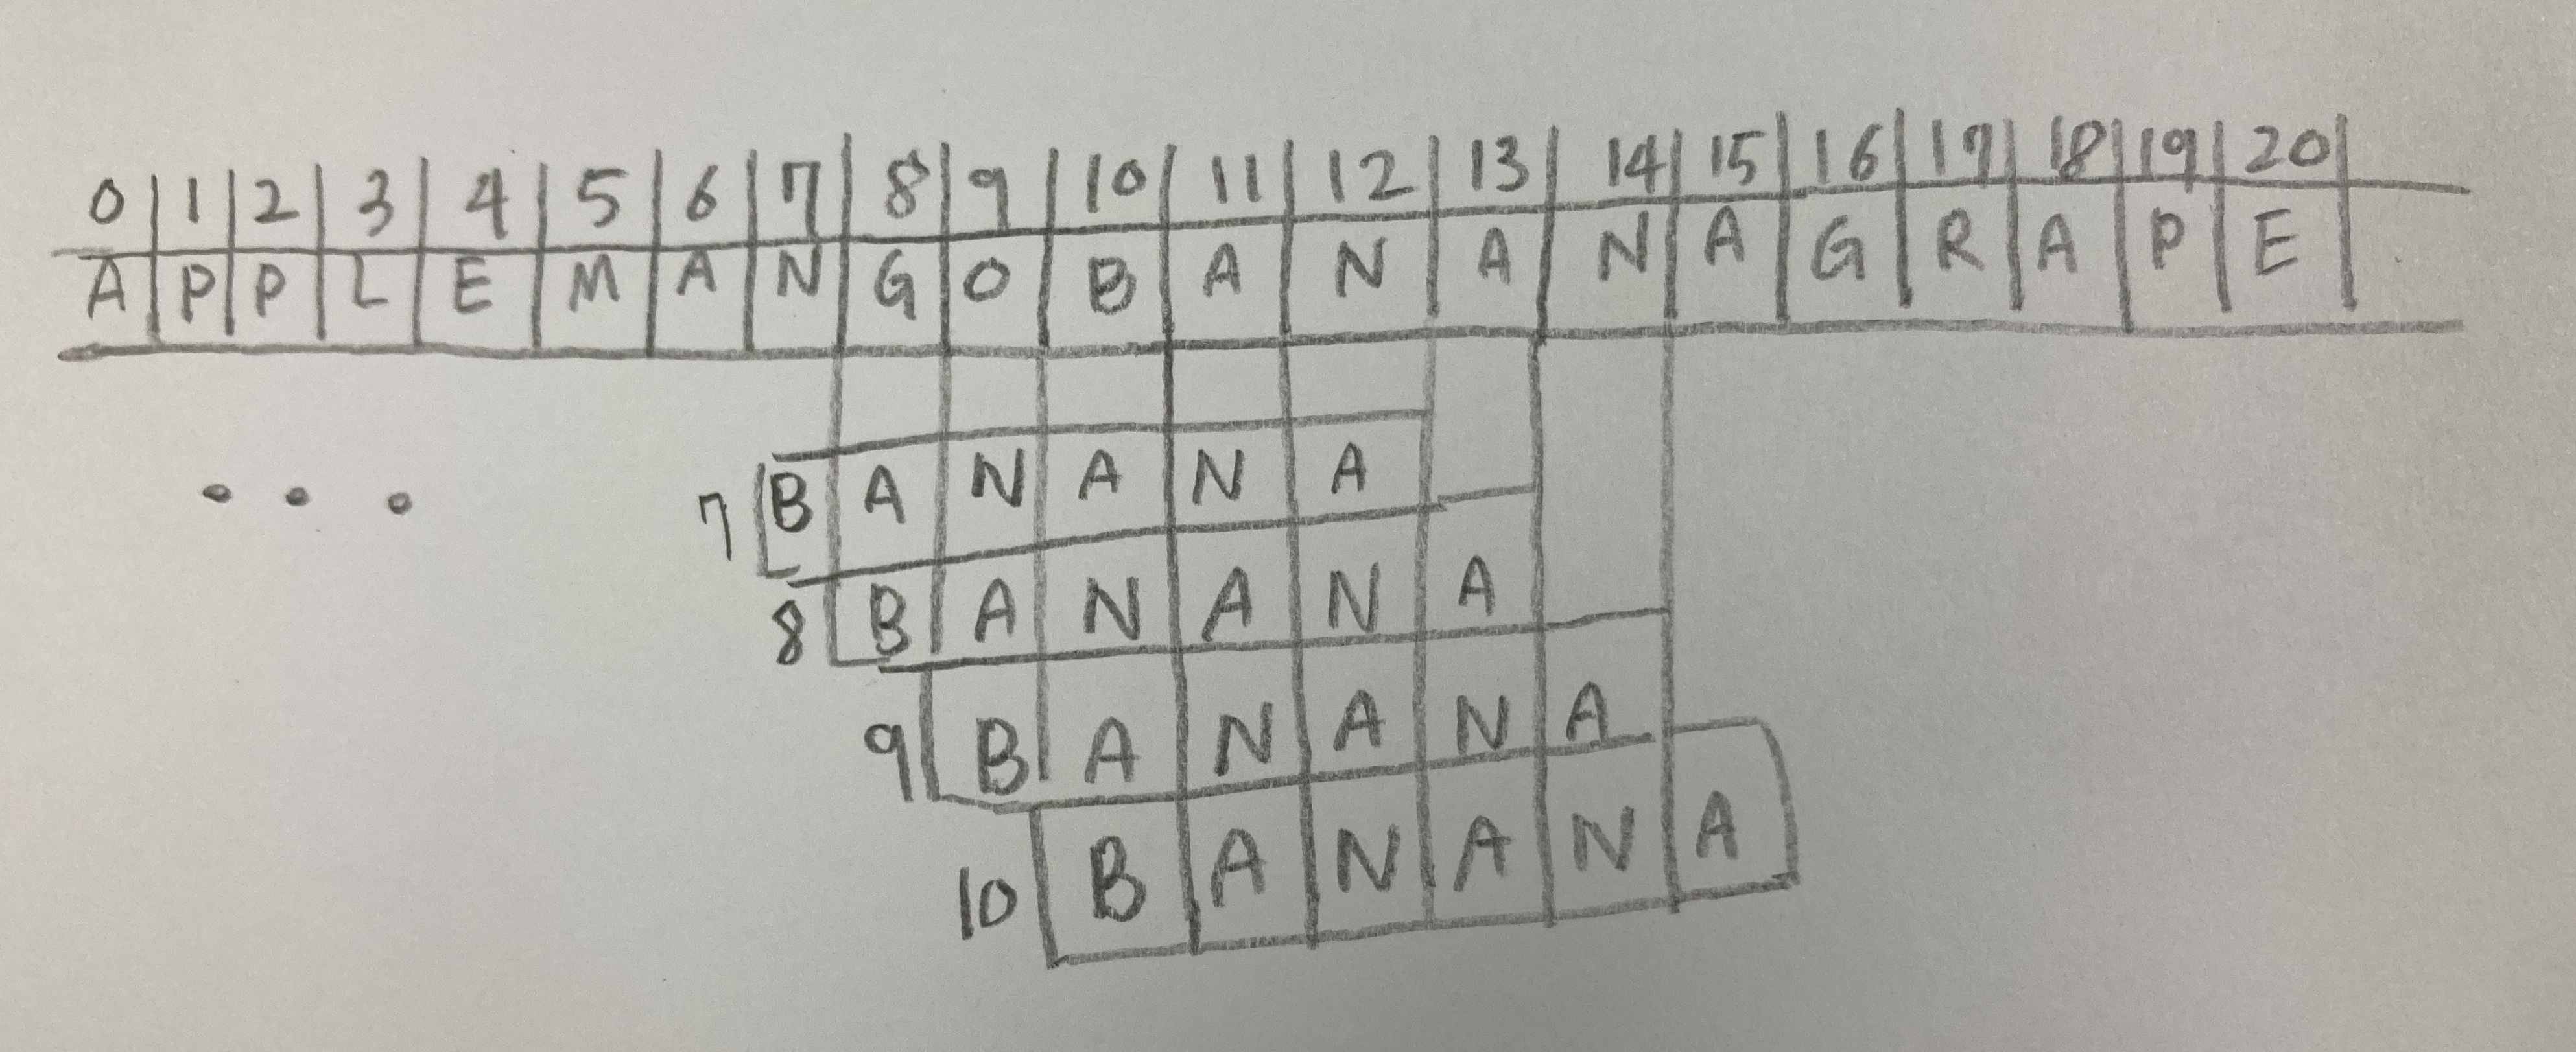 0 1 2 3 4 5 6 7 8 9 10 11 12 13 14 15 16 17 18 19 20
A P P L E M A N G O B A N A N A G R A P E
7 B A N A N A
8 B A N A N A
9 B A N A N A
10 B A N A N A